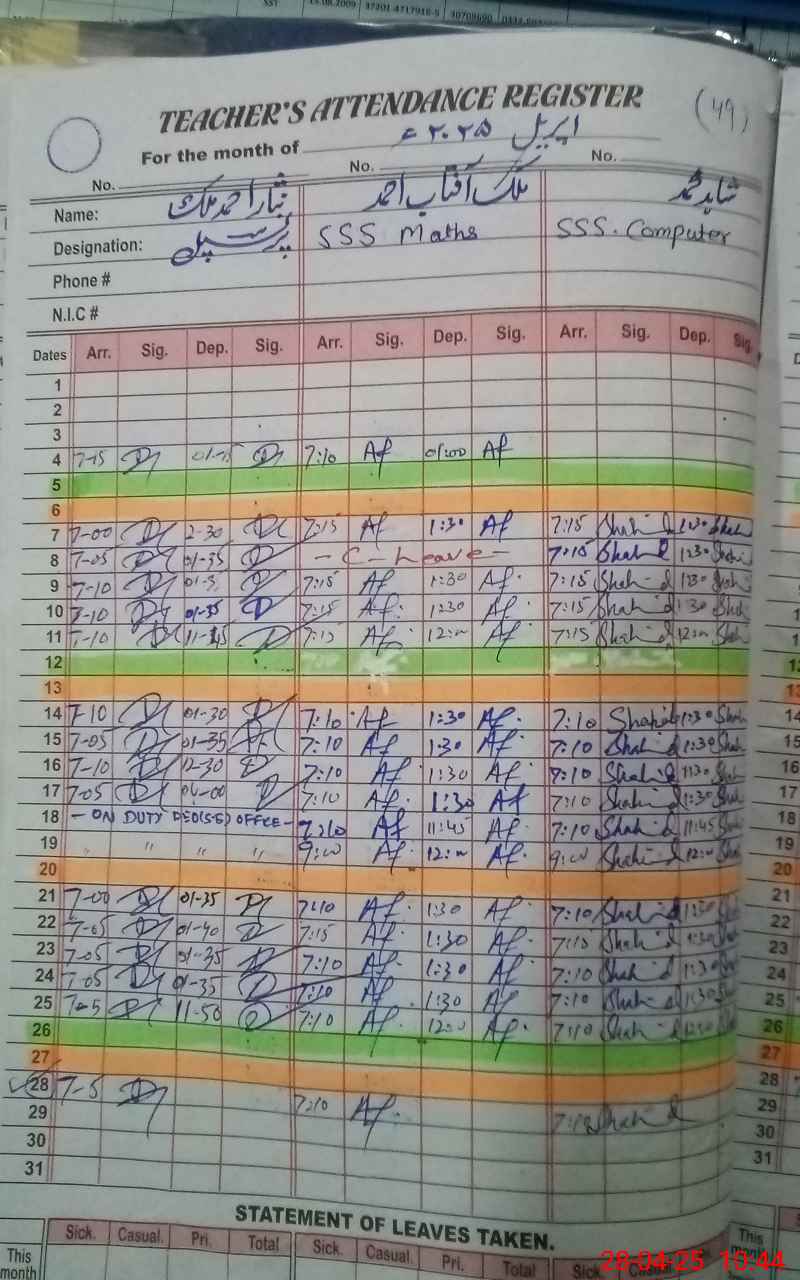 SST 15.08.2009 37201-4717916-5 30709690
TEACHER'S ATTENDANCE REGISTER (49)
For the month of اپریل ۲۰۲۵ء
No. No. No.
Name: نثار احمد ملک ملک آفتاب احمد شاہد محمد
Designation: پرنسپل SSS Maths SSS. Computer
Phone #
N.I.C #
Dates Arr. Sig. Dep. Sig. Arr. Sig. Dep. Sig. Arr. Sig. Dep. Sig.
1
2
3
4 7-15 01-15 7:10 Af 01:00 Af
5
6
7 7-00 2-30 7:15 Af 1:30 Af 7:15 Shahid 1:30 Shahi
8 7-05 01-35 - C - Leave - 7:15 Shahid 1:30 Shahi
9 7-10 01-3 7:15 Af 1:30 Af. 7:15 Shahid 1:30 Shahi
10 7-10 01-35 7:15 Af. 1:30 Af. 7:15 Shahid 1:30 Shah
11 7-10 11-45 7:15 Af. 12:00 Af. 7:15 Shahid 12:00 Shah
12
13
14 7-10 01-30 7:10 Af 1:30 Af. 7:10 Shahid 1:30 Shah
15 7-05 01-35 7:10 Af 1:30 Af. 7:10 Shahid 1:30 Shah
16 7-10 12-30 7:10 Af 1:30 Af. 7:10 Shahid 1:30 Shah
17 7-05 04-00 7:10 Af. 1:30 Af 7:10 Shahid 1:30 Shah
18 - ON DUTY DEO(S-S) OFFCE - 7:10 Af 11:45 Af. 7:10 Shahid 11:45 Shah
19 " " " " 9:00 Af. 12:00 Af. 9:00 Shahid 12:00 Shah
20
21 7-00 01-35 7:10 Af. 1:30 Af. 7:10 Shahid 1:30 Shah
22 7-05 01-40 7:15 Af. 1:30 Af. 7:15 Shahid 1:30 Shah
23 7-05 01-35 7:10 Af. 1:30 Af. 7:10 Shahid 1:30 Shah
24 7-05 01-35 7:10 Af. 1:30 Af. 7:10 Shahid 1:30 Shah
25 7-5 11-50 7:10 Af. 12:00 Af. 7:10 Shahid 12:00 Shah
26
27
28 7-5 7:10 Af. 7:10 Shahid
29
30
31
STATEMENT OF LEAVES TAKEN.
Sick. Casual. Pri. Total Sick. Casual. Pri. Total Sick. Casual.
This month
This
28-04-25 10:44